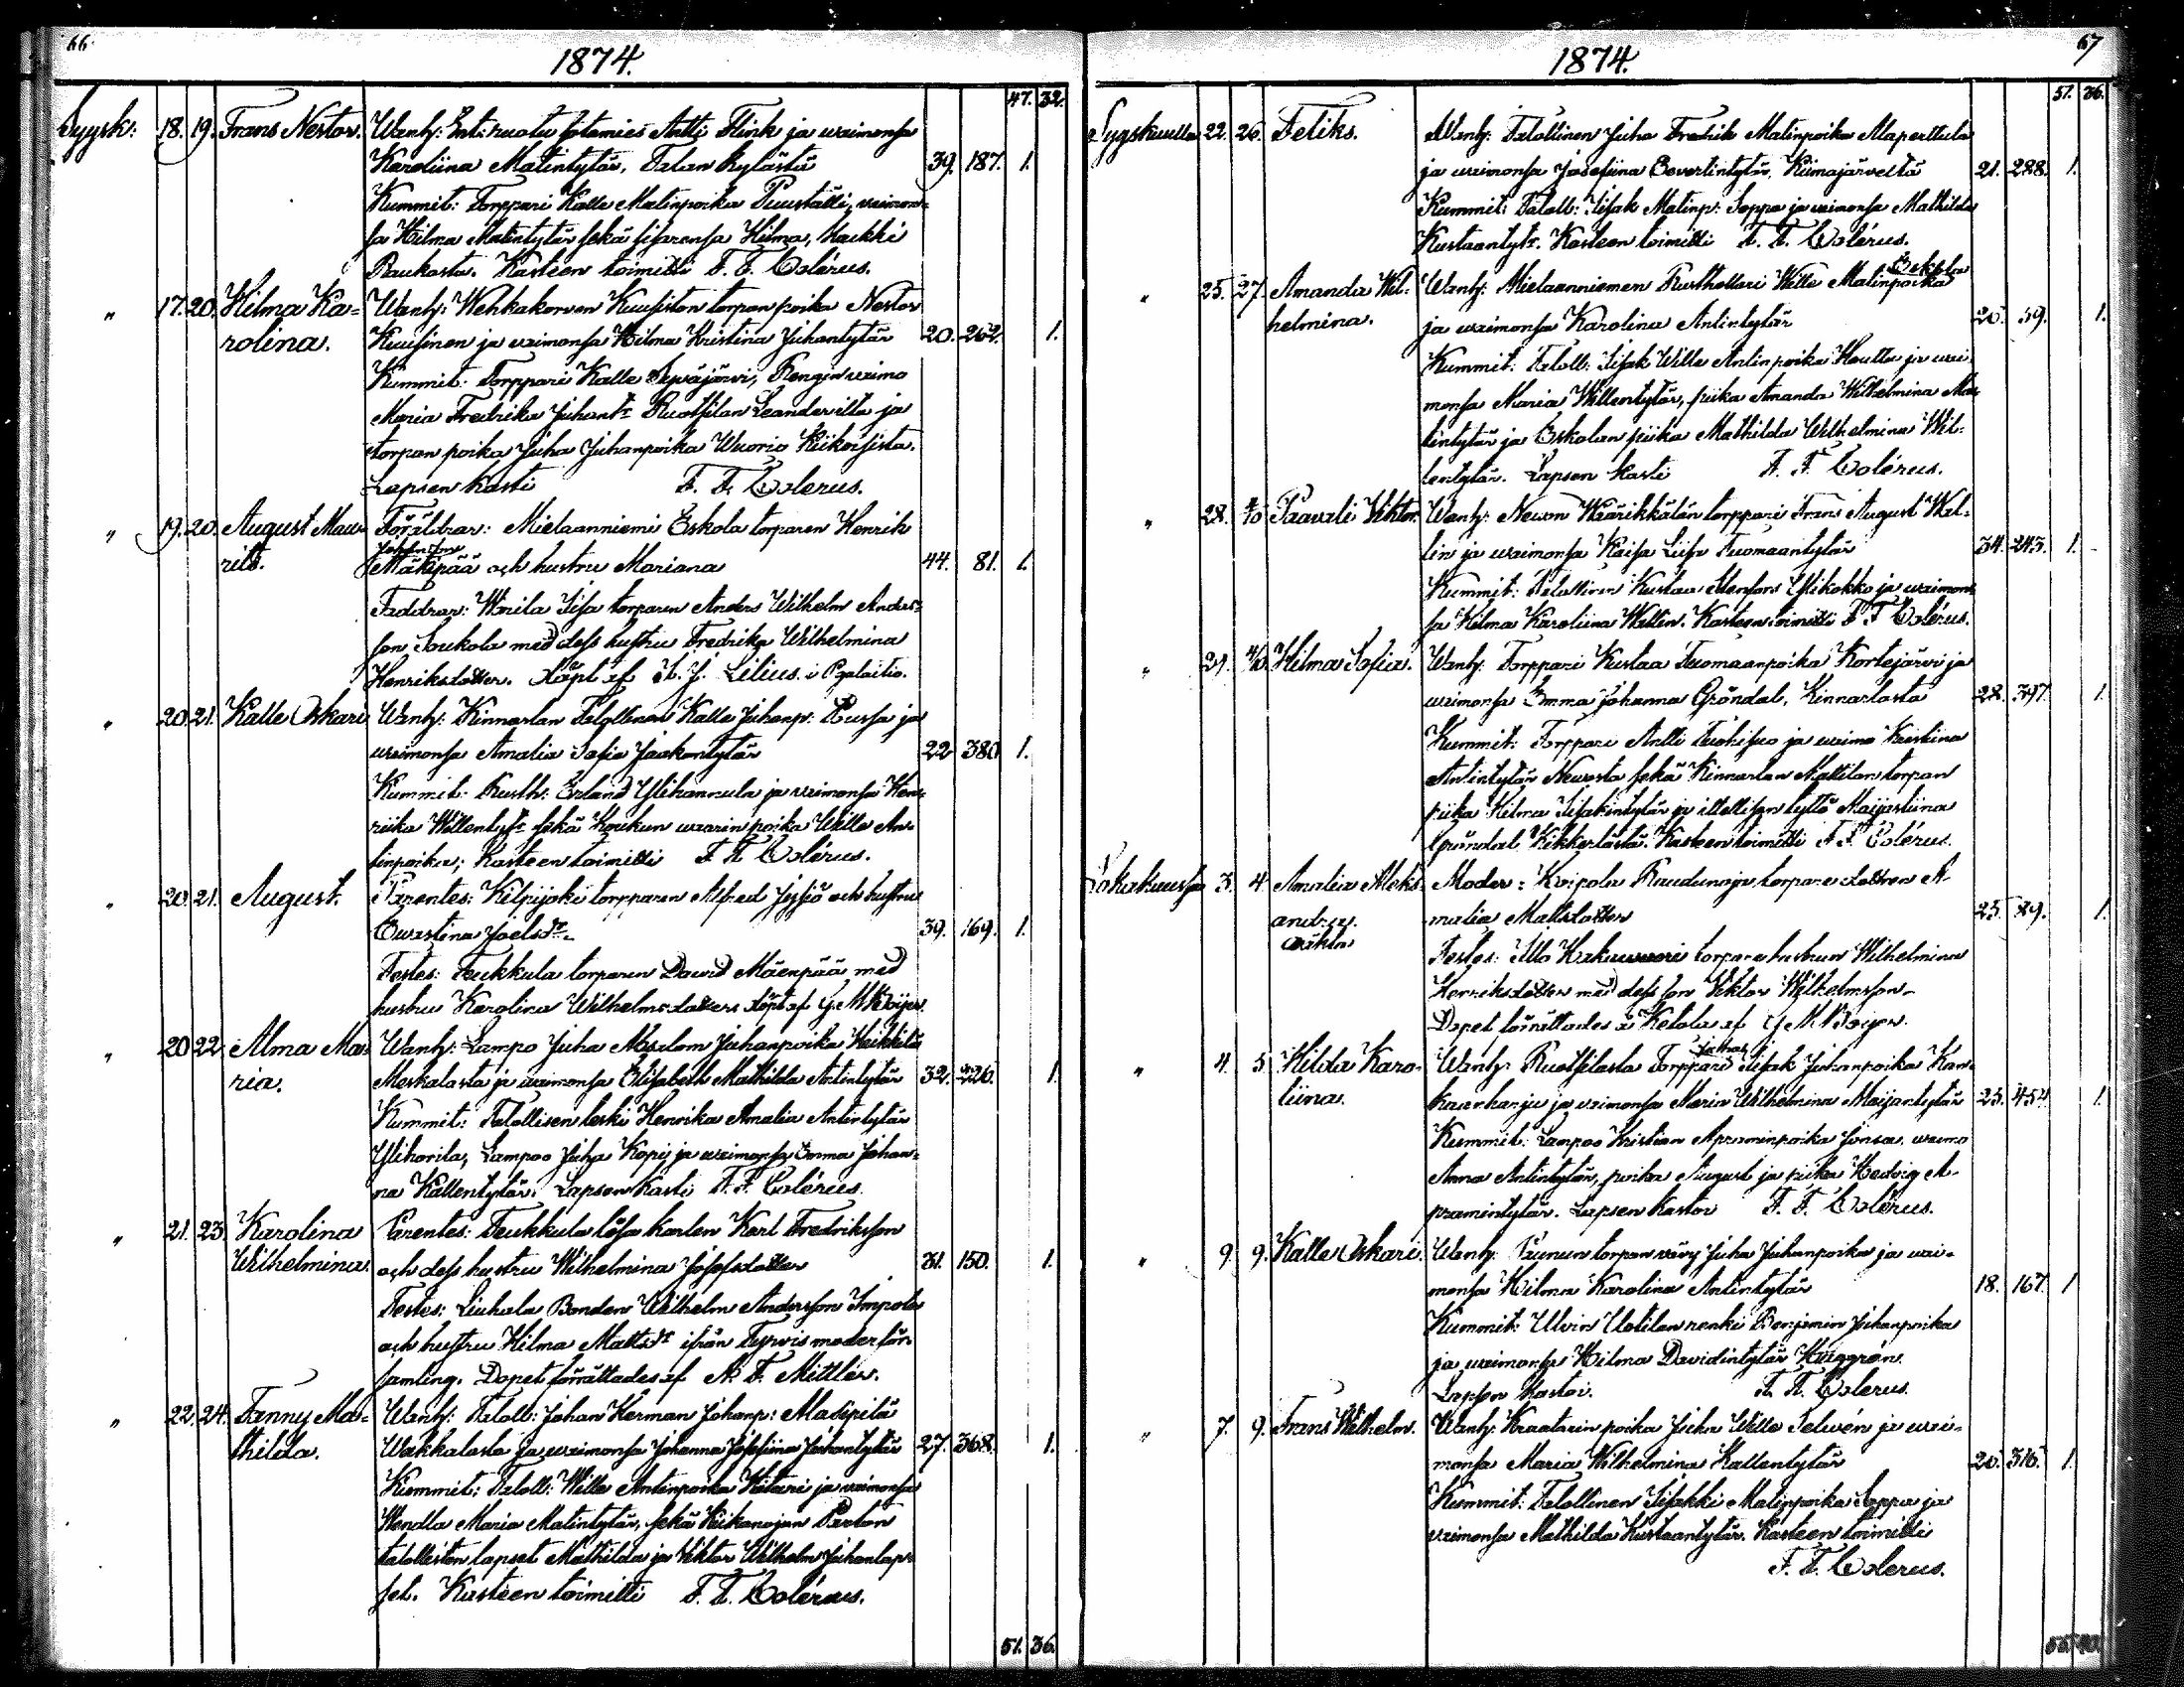 66.
1874.
47. 32.
Syysk: 18. 19. Frans Nestor. Wanh: Ent: ruotu sotamies Antti Flink ja waimonsa
Karoliina Matintytär, Talan kylästä 39. 187. 1.
Kummit: Torppari Kalle Matinpoika Puuställi, waimon-
sa Hilma Matintytär sekä sisarensa Hilma, Haukki
Raukosta. Kasteen toimitti F. F. Colérus.
" 17. 20. Hilma Ka- Wanh: Wehkakorven Kuusiston torpan poika Nestor
rolina. Kuusinen ja waimonsa Hilma Kristina Juhantytär 20. 262. 1.
Kummit: Torppari Kalle Sepäjärvi, Rengin waimo
Maria Fredrika Juhant: Ruotsilan Leanderilta ja
torpan poika Juha Juhanpoika Wuorio Kiikoisista.
Lapsen kasti F. F. Colerus.
" 19. 20. August Mau- Föräldrar: Mielaanniemi Eskola torparen Henrik
ritz. Johansson Mäkipää och hustru Mariana 44. 81. 1.
Faddrar: Warila Iisa torparen Anders Wilhelm Anders-
son Soukola med dess hustru Fredrika Wilhelmina
Henriksdotter. Döpt af K. J. Lilius.
" 20. 21. Kalle Oskari Wanh: Kinnarlan Talollinen Kalle Juhanp: Pussa ja
waimonsa Amalia Sofia Jaakontytär 22 380 1.
Kummit: Rusth: Erland Ylihannula ja waimonsa Hen-
riika Willentyt: sekä Koukun waarin poika Wille An-
tinpoika; Kasteen toimitti F. F. Colérus.
" 20. 21. August. Parentes: Kilpijoki torpparen Alfred Jyssiö och hustru
Ewastina Joelsdr. 39. 169. 1.
Testes: Teukkula torparen David Mäenpää med
hustru Karolina Wilhelmsdotter. döpt af G. M. Boijer.
" 20 22. Alma Ma- Wanh: Lampo Juha Absalom Juhanpoika Heikkilä
ria. Meskalasta ja waimonsa Elisabeth Mathilda Antintytär 32. 226. 1.
Kummit: Talollisen leski Henrika Amalia Antintytär
Ylihorila, Lampoo Juha Kopi ja waimonsa Emma Johan-
na Kallentytär. Lapsen kasti F. F. Colérus.
" 21. 23. Karolina Parentes: Teukkula lösa karlen Karl Fredriksson
Wilhelmina. och dess hustru Wilhelmina Josefsdotter 31. 150. 1.
Testes: Liuhala Bonden Wilhelm Andersson Impola
och hustru Hilma Mattsdr ifrån Tyrvis moderför-
samling. Dopet förrättades af A. F. Mittler.
" 22. 24. Fanny Ma- Wanh: Taloll: Johan Herman Johanp: Masipilä
thilda. Wakkalasta ja waimonsa Johanna Josefiina Juhantytär 27. 368. 1.
Kummit: Taloll: Wille Antinpoika Kitari ja waimonsa
Wendla Maria Matintytär, sekä Kiikanojan Parton
talolliston lapset Mathilda ja Viktor Wilhelm Juhanlap-
set. Kasteen toimitti F. F. Colérus.
51. 36.
67
1874.
51. 36.
Syyskuulla 22. 26. Feliks. Wanh: Talollinen Juha Fredrik Matinpoika Alaperttula
ja waimonsa Josefiina Evertintytär, Kiimajärveltä 21. 288. 1.
Kummit: Taloll: Iisak Matinp: Soppa ja waimonsa Mathilda
Kustaantyt:. Kasteen toimitti F. F. Colérus.
" 25. 27. Amanda Wil- Wanh: Mielaanniemen Rusthollari Wille Matinpoika Eskola
helmina. ja waimonsa Karolina Antintytär 26. 59. 1.
Kummit: Taloll: Iisak Wille Antinpoika Houtta ja wai-
monsa Maria Willentytär, piika Amanda Wilhelmina Ma-
tintytär ja Eskolan piika Mathilda Wilhelmina Wil-
lentytär. Lapsen kasti F. F. Colérus.
" 28. 4/10 Paavali Viktor. Wanh: Newon Wäärikkälän torppari Frans August Wal-
lin ja waimonsa Kaisa Liisa Tuomaantytär 34. 243. 1.
Kummit: Talollinen Kustaa Ylikokko ja waimon-
sa Hilma Karoliina Wallen. Kasteen toimitti F. F. Colérus.
" 29. 4/10. Hilma Sofia. Wanh: Torppari Kustaa Tuomaanpoika Kortejärvi ja
waimonsa Emma Johanna Gröndal, Kinnarlasta 28. 397. 1.
Kummit: Torppari Antti Tuohisuo ja waimo Kristina
Antintytär Newosta sekä Kinnarlan Mattilan torpan
piika Hilma Iisakintytär ja itellisen tyttö Maijastiina
Gröndal Kikkerlästä. Kasteen toimitti F. F. Colérus.
Lokakuussa 3. 4. Amalia Aleks- Moder: Koipola Raudunoja torpare dottren A-
andra. malia Mattsdotter 23. 29. 1.
oäkta Testes: Illo Kakuwuori torpare hustrun Wilhelmina
Henriksdotter med dess son Viktor Wilhelmsson.
Dopet förrättades i Ketola af G. M. Boijer.
" 4. 5 Hilda Karo- Wanh: Ruotsilasta Torppari Iisak Juhanpoika Kan-
liina. kaanharju ja waimonsa Maria Wilhelmina Maijantytär 25. 454. 1.
Kummit: Lampoo Kristian Apraminpoika Jonsa, waimo
Anna Antintytär, poika August ja piika Hedvig A-
pramintytär. Lapsen kastoi F. F. Colérus.
" 9. 9. Kalle Oskari. Wanh: Punun torpan vävy Juha Juhanpoika ja wai-
monsa Hilma Karolina Antintytär 18. 167. 1
Kummit: Ulvin Uotilan renki Benjamin Juhanpoika
ja waimonsa Hilma Davidintytär Häggrön.
Lapsen kastoi. F. F. Colerus.
" 7. 9. Frans Wilhelm. Wanh: Kraatarin poika Juha Wille Selwén ja wai-
monsa Maria Wilhelmina Kallentytär 26. 316. 1.
Kummit: Talollinen Iisakki Matinpoika Soppa ja
waimonsa Mathilda Kustaantytär. Kasteen toimitti
F. F. Colerus.
55. 40.